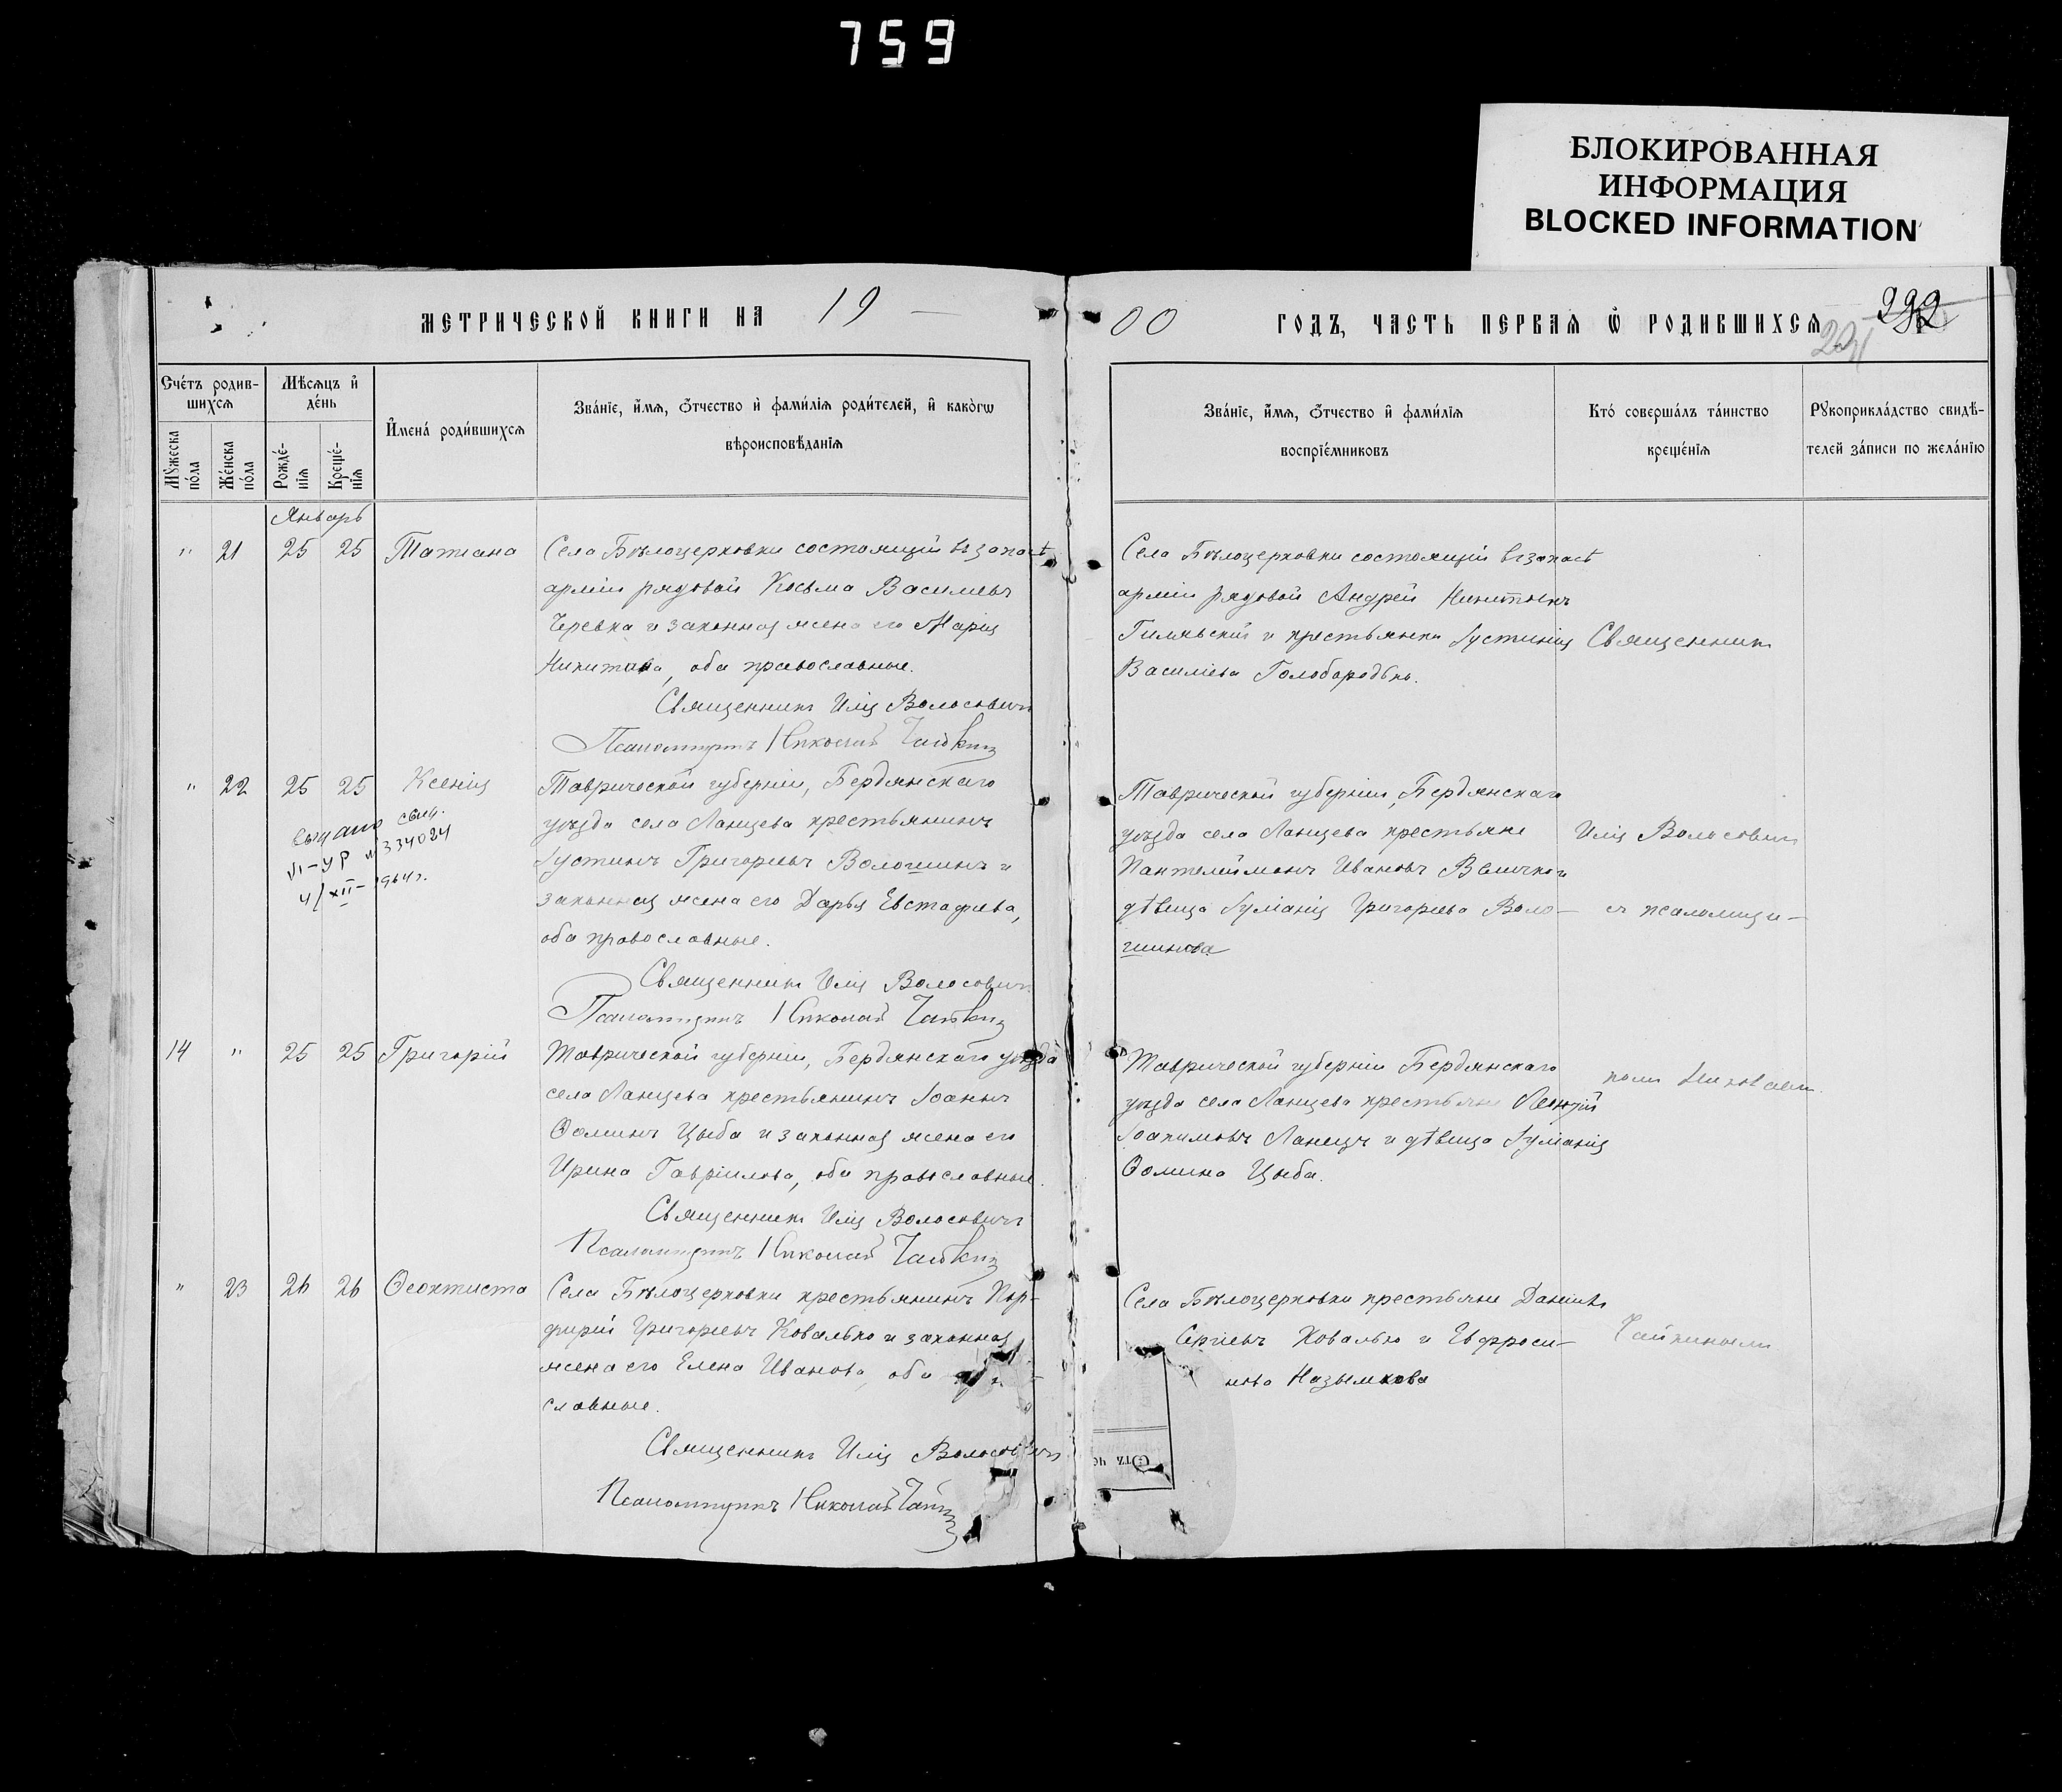 759
БЛОКИРОВАННАЯ
ИНФОРМАЦИЯ
BLOCKED INFORMATION
МЕТРИЧЕСКОЙ КНИГИ НА 19
00 ГОДЪ, ЧАСТЬ ПЕРВАЯ Ѡ РОДИВШИХСЯ
292
Сче́тъ родив-
шихсѧ
Мѣ́сѧцъ и҆
де́нь
И҆мена́ роди́вшихсѧ
Зва́нїе, и҆́мѧ, ѻ҆́тчество и҆ фами́лїѧ роди́телей, и҆ како́гѡ
вѣроисповѣ́данїѧ
Мꙋ́жеска
по́ла
Же́нска
по́ла
Рожде́-
нїѧ
Креще́-
нїѧ
Зва́нїе, и҆́мѧ, ѻ҆́тчество и҆ фами́лїѧ
воспрїе́мниковъ
Кто̀ соверша́лъ та́инство
креще́нїѧ
Рꙋкоприкла́дство свидѣ́-
телей за́писи по жела́нїю
Январь
" 21 25 25 Татiана
Села Бѣлоцерковки состоящій въ запасѣ
арміи рядовой Косьма Васильевъ
Черевка и законная жена его Марія
Никитова, оба православные.
Священникъ Илія Волосовичъ
Псаломщикъ Николай Чайкинъ
Села Бѣлоцерковки состоящій въ запасѣ
арміи рядовой Андрей Никитинъ
и крестьянка Іустинія
Василіева Голобородько.
Священникъ
" 22 25 25 Ксенія
выдано свид.
VI-УР № 334024
4/XII-1964г.
Таврической губерніи, Бердянскаго
уѣзда села Ланцева крестьянинъ
Іустинъ Григорьевъ Волошинъ и
законная жена его Дарья Евстафіева,
оба православные.
Священникъ Илія Волосовичъ
Псаломщикъ Николай Чайкинъ
Таврической губерніи, Бердянскаго
уѣзда села Ланцева крестьяне
Пантелеймонъ Ивановъ Величко и
дѣвица Іуліанія Григорьева Воло-
шинова
Илія Волосовичъ
съ псаломщи-
14 " 25 25 Григорій
Таврической губерніи, Бердянскаго уѣзда
села Ланцева крестьянинъ Іоаннъ
Ѳоминъ Цыба и законная жена его
Ирина Гавріилова, оба православные.
Священникъ Илія Волосовичъ
Псаломщикъ Николай Чайкинъ
Таврической губерніи Бердянскаго
уѣзда села Ланцева крестьяне
Іоакимовъ Ланецъ и дѣвица Іуліанія
Ѳомина Цыба.
комъ Николаемъ
" 23 26 26 Ѳеоктиста
Села Бѣлоцерковки крестьянинъ Пор-
фирій Григорьевъ Ковалько и законная
жена его Елена Иванова, оба
славные.
Священникъ Илія Волосовичъ
Псаломщикъ Николай
Села Бѣлоцерковки крестьяне Даніилъ
Сергіевъ Ковалько и Евфроси-
Чайкинымъ